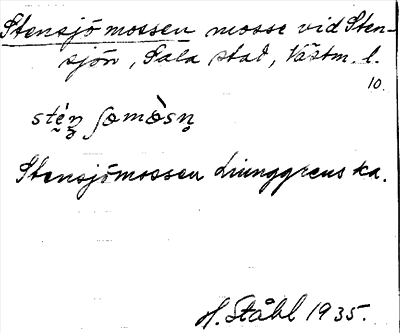 Stensjömossen mosse vid Sten-
sjön, Sala stad, Västm. l.
10.
Stensjömossen Ljunggrens ka.
H. Ståhl 1935.